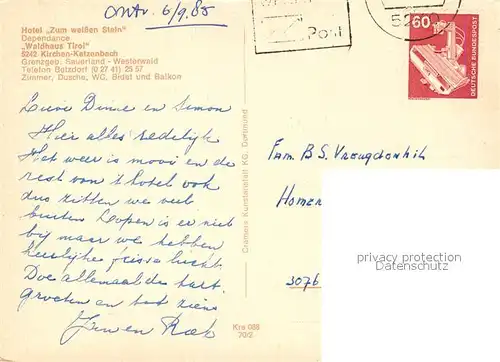 Ontv. 6/9.85
Hotel „Zum weißen Stein"
Dependance
„Waldhaus Tirol"
5242 Kirchen-Katzenbach
Grenzgeb. Sauerland - Westerwald
Telefon Betzdorf (0 27 41) 25 57
Zimmer, Dusche, WC, Bidet und Balkon
Post
52
60
DEUTSCHE BUNDESPOST
Lieve Dinie en Simon
Hier alles redelijk
Het weer is mooi en de
rest van 't hotel ook
dus zitten we veel
buiten Loopen is er niet
bij maar we hebben
heerlijke frisse lucht.
Doe allemaal de hart.
groeten en tot ziens
Cramers Kunstanstalt KG, Dortmund
Krs 088
70/2
Fam B S. Vreugdenhil
Homer
3076
privacy protection
oldthing.de